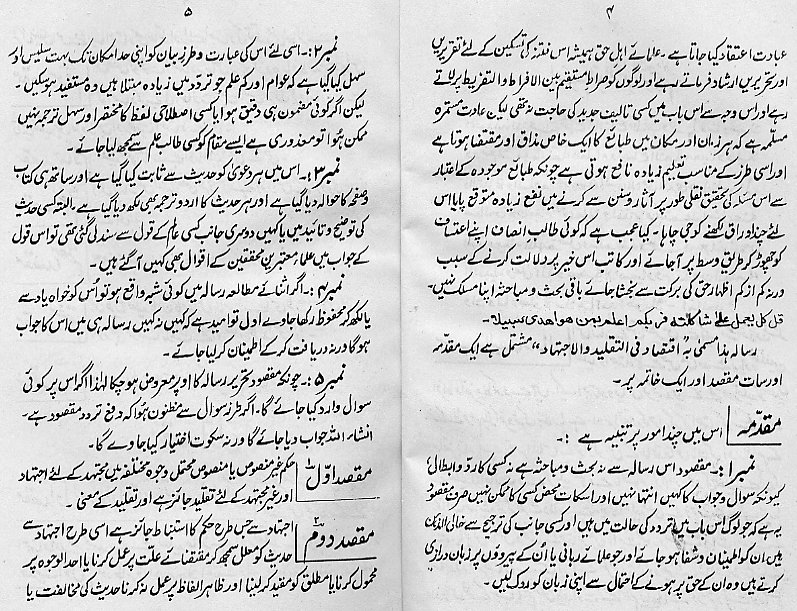 ۴
عبادت اعتقاد کیا جاتا ہے۔ علمائے اہل حق ہمیشہ اس فتنہ کی تسکین کے لئے تقریریں
اور تحریریں ارشاد فرماتے رہے اور لوگوں کو صراط مستقیم بین الافراط والتفریط پر لاتے
رہے اور اس وجہ سے اس باب میں کسی تالیف جدید کی حاجت نہ تھی لیکن عادت مستمرہ
مسلّمہ ہے کہ ہر زمان اور مکان میں طبائع کا ایک خاص مذاق اور مقتضا ہوتا ہے
اور اسی طرز کے مناسب تعلیم زیادہ نافع ہوتی ہے چونکہ طبائع موجودہ کے اعتبار
سے اس مسئلہ کی تحقیق نقلی طور پر آثار و سنن سے کرنے میں نفع زیادہ متوقع پایا اس
لئے چند اوراق لکھنے کو جی چاہا۔ کیا عجب ہے کہ کوئی طالب انصاف اپنے اعتساف
کو چھوڑ کر طریق وسط پر آجائے اور کاتب اس خیر پر دلالت کرنے کے سبب
ورنہ کم از کم اظہار حق کی برکت سے بخشا جائے باقی بحث و مباحثہ اپنا مسلک نہیں۔
قل کل یعمل علی شاکلتہ فربکم اعلم بمن ھو اھدی سبیلا۔
رسالہ ہذا مسمی بہ "اقتصاد فی التقلید والاجتہاد" مشتمل ہے ایک مقدمہ
اور سات مقصد اور ایک خاتمہ پر۔
مقدّمہ اس میں چند امور پر تنبیہ ہے :۔
نمبر۱:۔ مقصود اس رسالہ سے نہ بحث و مباحثہ ہے نہ کسی کا رد و ابطال،
کیونکہ سوال وجواب کا کہیں انتہا نہیں اور اسکات محض کسی کا ممکن نہیں صرف مقصود
یہ ہے کہ جو لوگ اس باب میں تردد کی حالت میں ہیں اور کسی جانب کی ترجیح سے خالی الذہن
ہیں ان کو اطمینان و شفا ہو جائے اور جو علمائے ربانی یا اُن کے پیروؤں پر زبان درازی
کرتے ہیں وہ ان کے حق پر ہونے کے احتمال سے اپنی زبان کو روک لیں۔
۵
نمبر۲:۔ اسی لئے اس کی عبارت و طرز بیان کو اپنی حد امکان تک بہت سلیس اور
سہل کیا گیا ہے کہ عوام اور کم علم جو تردد میں زیادہ مبتلا ہیں وہ مستفید ہو سکیں۔
لیکن اگر کوئی مضمون ہی دقیق ہو یا کسی اصطلاحی لفظ کا مختصر اور سہل ترجمہ نہیں
ممکن ہُوا تو معذوری ہے ایسے مقام کو کسی طالب علم سے سمجھ لیا جائے۔
نمبر۳:۔ اس میں ہر دعویٰ کو حدیث سے ثابت کیا گیا ہے اور ساتھ ہی کتاب
و صفحہ کا حوالہ دیا گیا ہے اور ہر حدیث کا اردو ترجمہ بھی لکھ دیا گیا ہے۔ البتہ کسی حدیث
کی توضیح و تائید میں یا کہیں دوسری جانب کسی عالم کے قول سے سند لی گئی تھی تو اس قول
کے جواب میں علمائے معتبرین محققین کے اقوال بھی کہیں آگئے ہیں۔
نمبر۴:۔ اگر اثنائے مطالعہ رسالہ میں کوئی شبہ واقع ہو تو اُس کو خواہ یاد سے
یا لکھ کر محفوظ رکھا جاوے اول تو امید ہے کہ کہیں نہ کہیں رسالہ ہی میں اس کا جواب
ہوگا ورنہ دریافت کر کے اطمینان کر لیا جائے۔
نمبر۵:۔ چونکہ مقصود تحریر رسالہ کا اوپر معروض ہو چکا لہٰذا اگر اس پر کوئی
سوال وارد کیا جائے گا۔ اگر طرز سوال سے مظنون ہُوا کہ دفع تردد مقصود ہے۔
انشاء اللہ جواب دیا جائے گا ورنہ سکوت اختیار کیا جاوے گا۔
مقصد اوّل ۱ حکم غیر منصوص یا منصوص محتمل وجوہ مختلفہ میں مجتہد کے لئے اجتہاد
اور غیر مجتہد کے لئے تقلید جائز ہے اور تقلید کے معنی۔
مقصد دوم ۲ اجتہاد سے جس طرح حکم کا استنباط جائز ہے اسی طرح اجتہاد سے
حدیث کو معلل سمجھ کر مقتضائے علّت پر عمل کرنا یا احد الوجوہ پر
محمول کرنا یا مطلق کو مقید کر لینا اور ظاہر الفاظ پر عمل نہ کرنا حدیث کی مخالفت یا